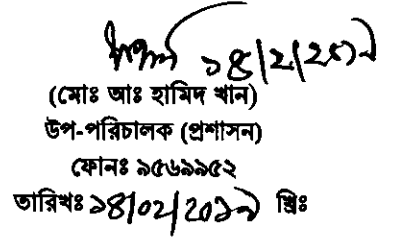 ১৪/২/২০১৯
(মোঃ আঃ হামিদ খান)
উপ-পরিচালক (প্রশাসন)
ফোনঃ ৯৫৬৯৯৫২
তারিখঃ ১৪/০২/২০১৯ খ্রিঃ